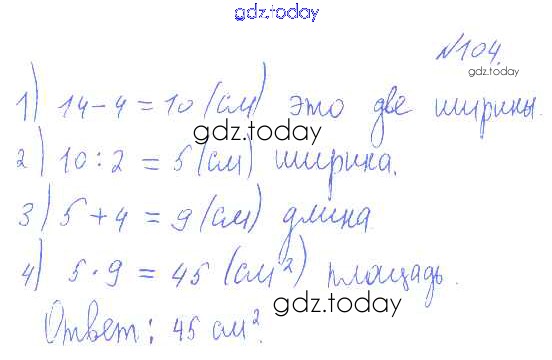 gdz.today
№104.
gdz.today
1) 14-4=10 (см) это две ширины.
gdz.today
2) 10:2 = 5 (см) ширина.
3) 5+4 = 9 (см) длина
gdz.today
4) 5·9 = 45 (см²) площадь.
gdz.today
Ответ: 45 см².